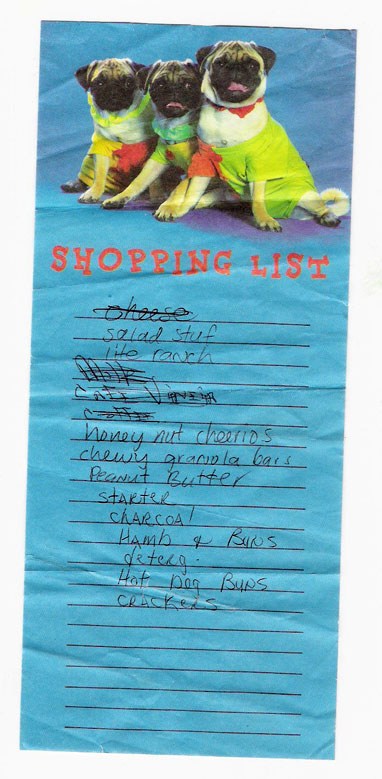 SHOPPING LIST
cheese
salad stuf
lite ranch
Milk
coffee
honey nut cheerios
chewy granola bars
Peanut Butter
STARTER
CHARCOAl
HAMb & BUNS
deterg.
Hot Dog BUNS
CRACKERS